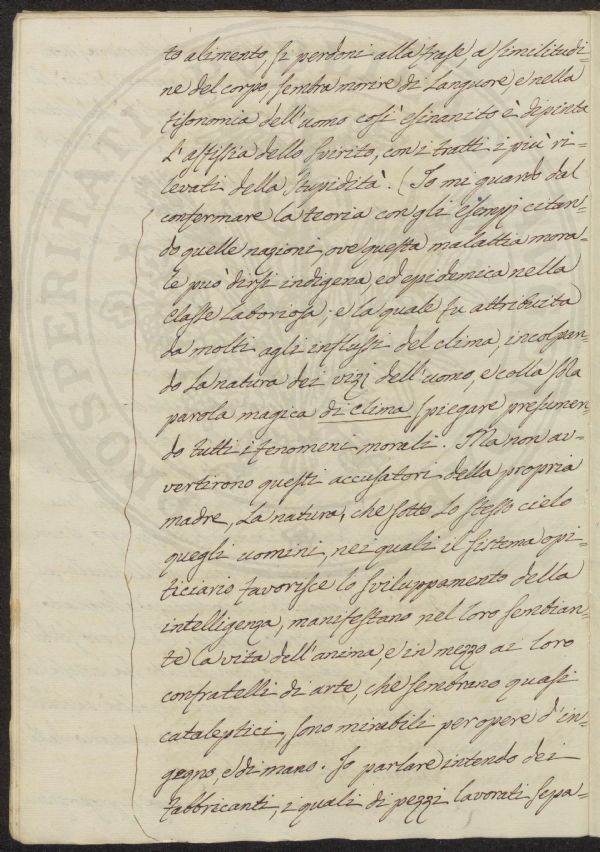 to alimento, si perdoni alla frase, a similitudi=
ne del corpo, sembra morire di languore e nella
fisonomia dell'uomo così esinanito è dipinta
l'asfissia dello spirito, con i tratti i più ri=
levati della stupidità. (Io mi guardo dal
confermare la teoria con gli esempj citan=
do quelle nazioni, ove questa malattia mora=
le può dirsi indigena, ed epidemica nella
classe laboriosa; e la quale fu attribuita
da molti agli influssi del clima, incolpan=
do la natura dei vizj dell'uomo, e colla sola
parola magica di clima spiegare presumen=
do tutti i fenomeni morali. Ma non av=
vertirono questi accusatori della propria
madre, la natura, che sotto lo stesso cielo
quegli uomini, nei quali il sistema opi=
ticiario favorisce lo sviluppamento della
intelligenza, manifestano nel loro sembian=
te la vita dell'anima, e in mezzo ai loro
confratelli di arte, che sembrano quasi
cataleptici, sono mirabili per opere d'in=
gegno, e di mano. Io parlare intendo dei
fabbricanti, i quali di pezzi lavorati sepa=
PROSPERITATI